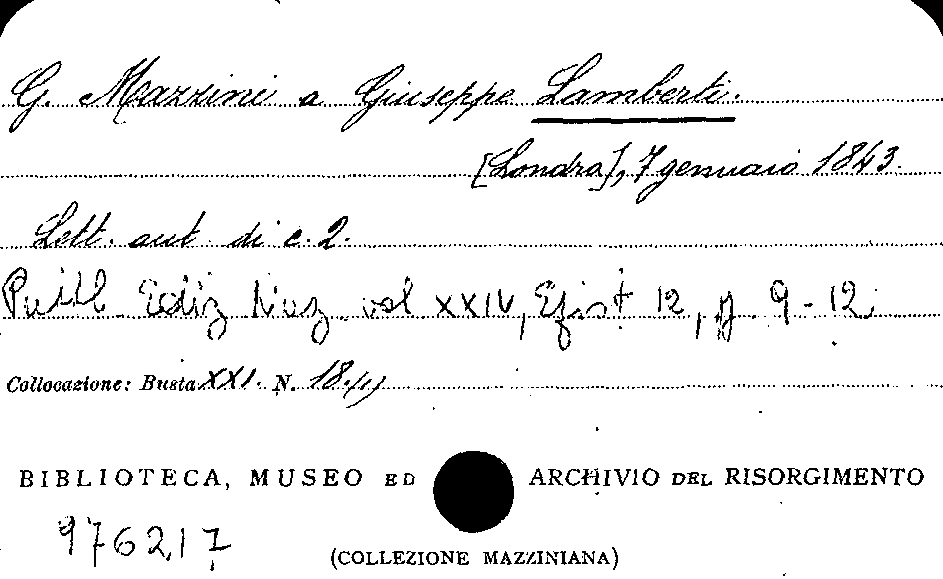 G. Mazzini a Giuseppe Lamberti.
[Londra], 7 gennaio 1843.
Lett. aut. di c. 2.
Pubbl. Ediz. Naz. vol XXIV, Epist 12, p. 9-12.
Collocazione: Busta XXI. N. 18.
BIBLIOTECA, MUSEO ED ARCHIVIO DEL RISORGIMENTO
97621 7
(COLLEZIONE MAZZINIANA)